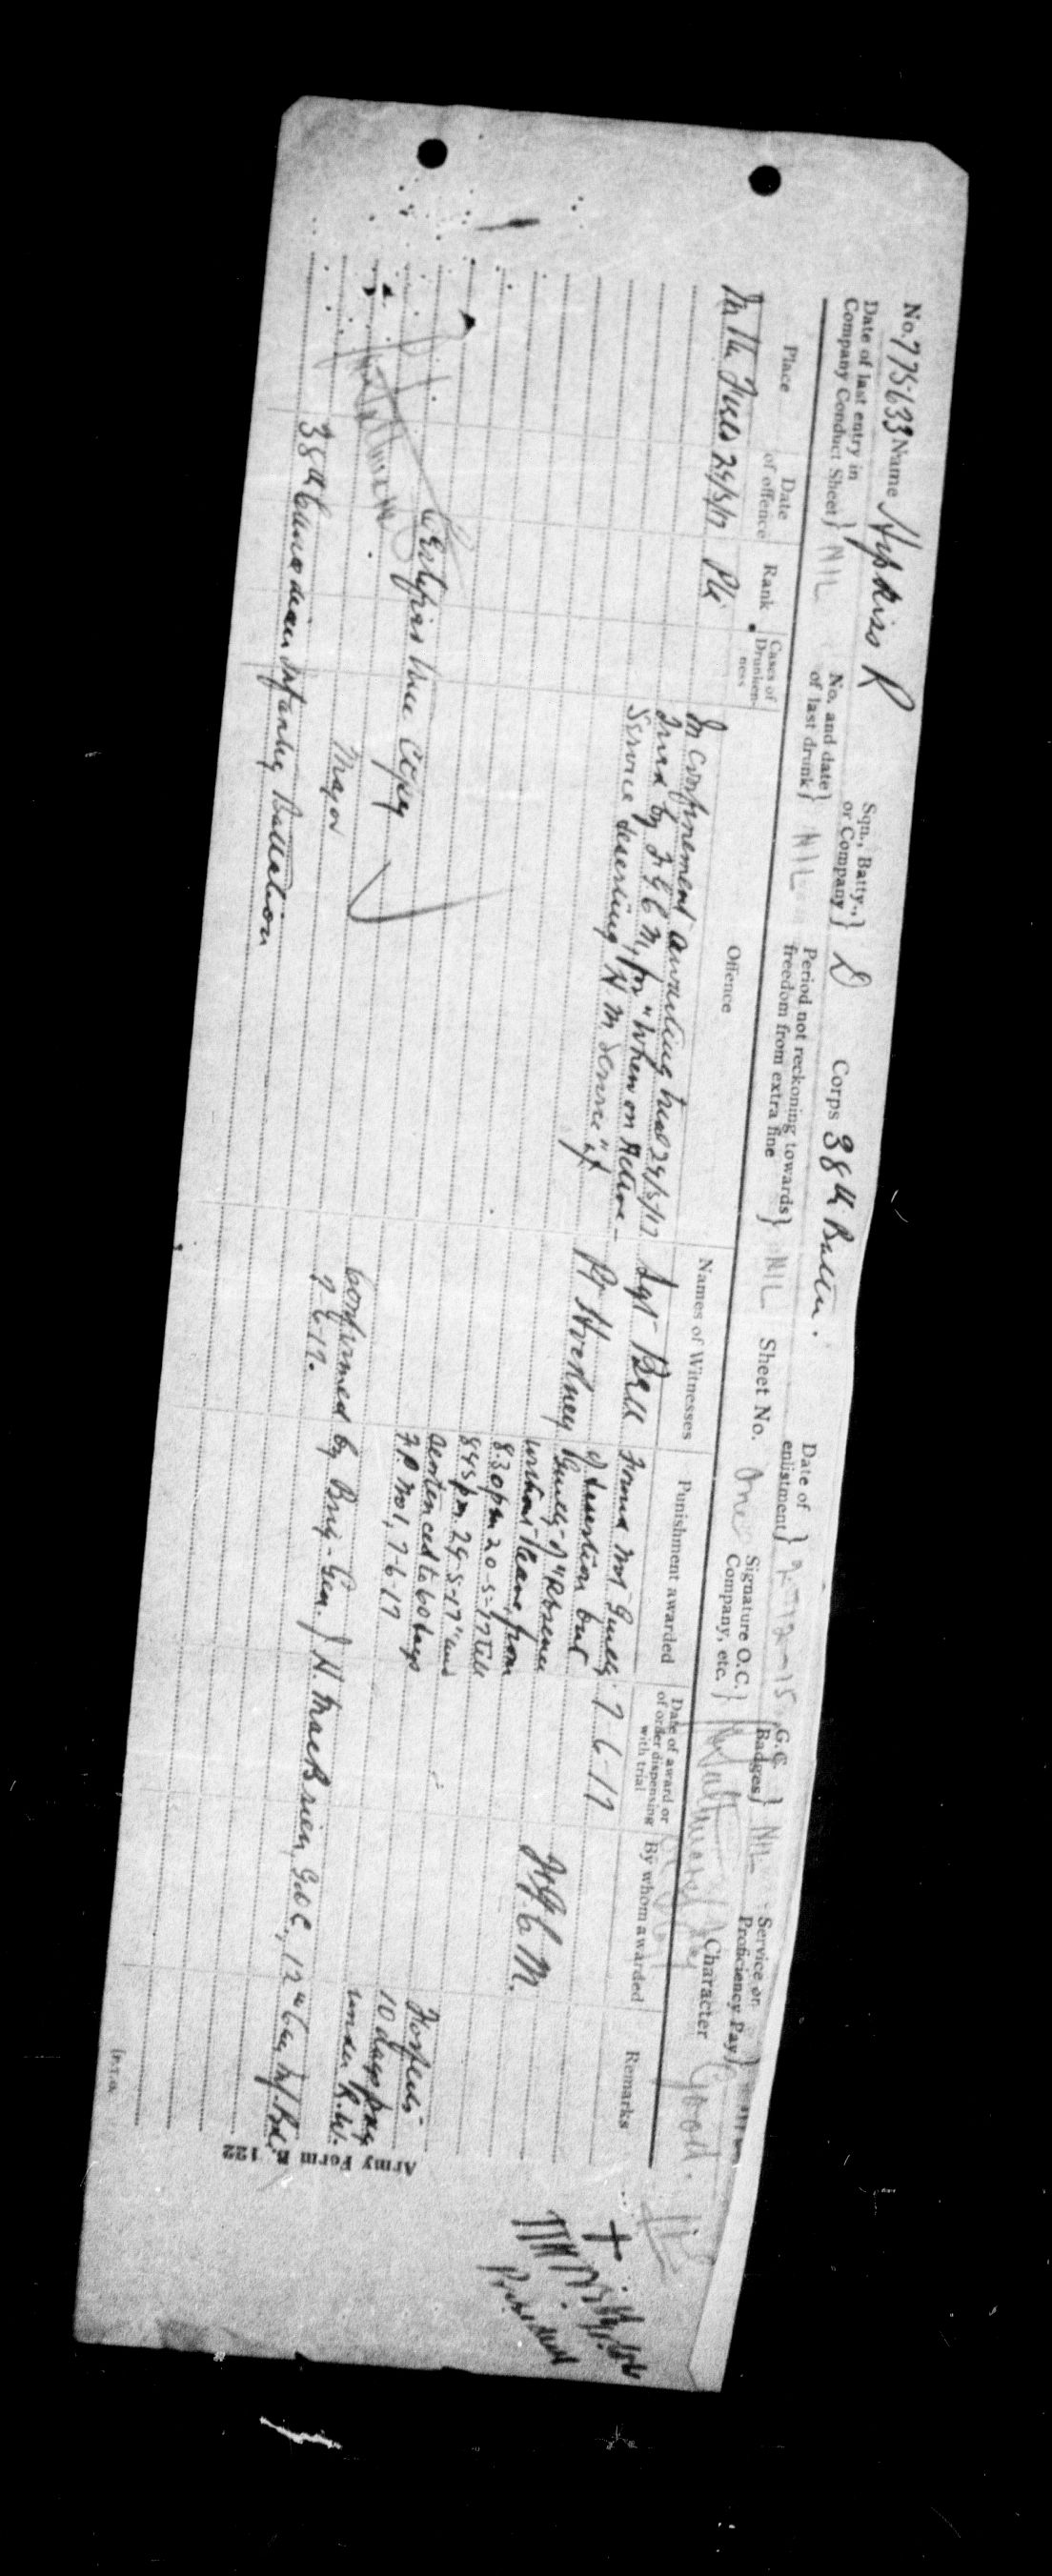 No. 775633 Name Hipkiss R Squn., Batty., or Company} D Corps 38th Battn. Date of enlistment} 2-12-15 G.C. Badges} NIL Service or Proficiency Pay}
Date of last entry in Company Conduct Sheet} NIL No. and date of last drunk} NIL Period not reckoning towards freedom from extra fine} NIL Sheet No. One Signature O.C. Company, etc.} Character Good.
Place Date of offence Rank Cases of Drunkenness Offence Names of Witnesses Punishment awarded Date of award or of order dispensing with trial By whom awarded Remarks
In the Field 24/5/17 Pte
In confinement awaiting trial 24/5/17 Sgt Bell Found not Guilty 7-6-17
Tried by F.G.C.M, for "When on Active Pt of desertion but
Service deserting H.M. Service" Guilty of "Absence
without leave, from F.G.C.M.
8.30pm 20-5-17 till
8.45pm. 24-5-17" and
sentenced to 60 days Forfeits
F.P. No 1, 7-6-17 10 days pay
under R.W.
Certified true Copy
Confirmed by Brig-Gen. J.H. MacBrien, G.O.C., 12th Can. Inf. Bde.
7-6-17.
Major
38th Canadian Infantry Battalion
Army Form B. 122
President